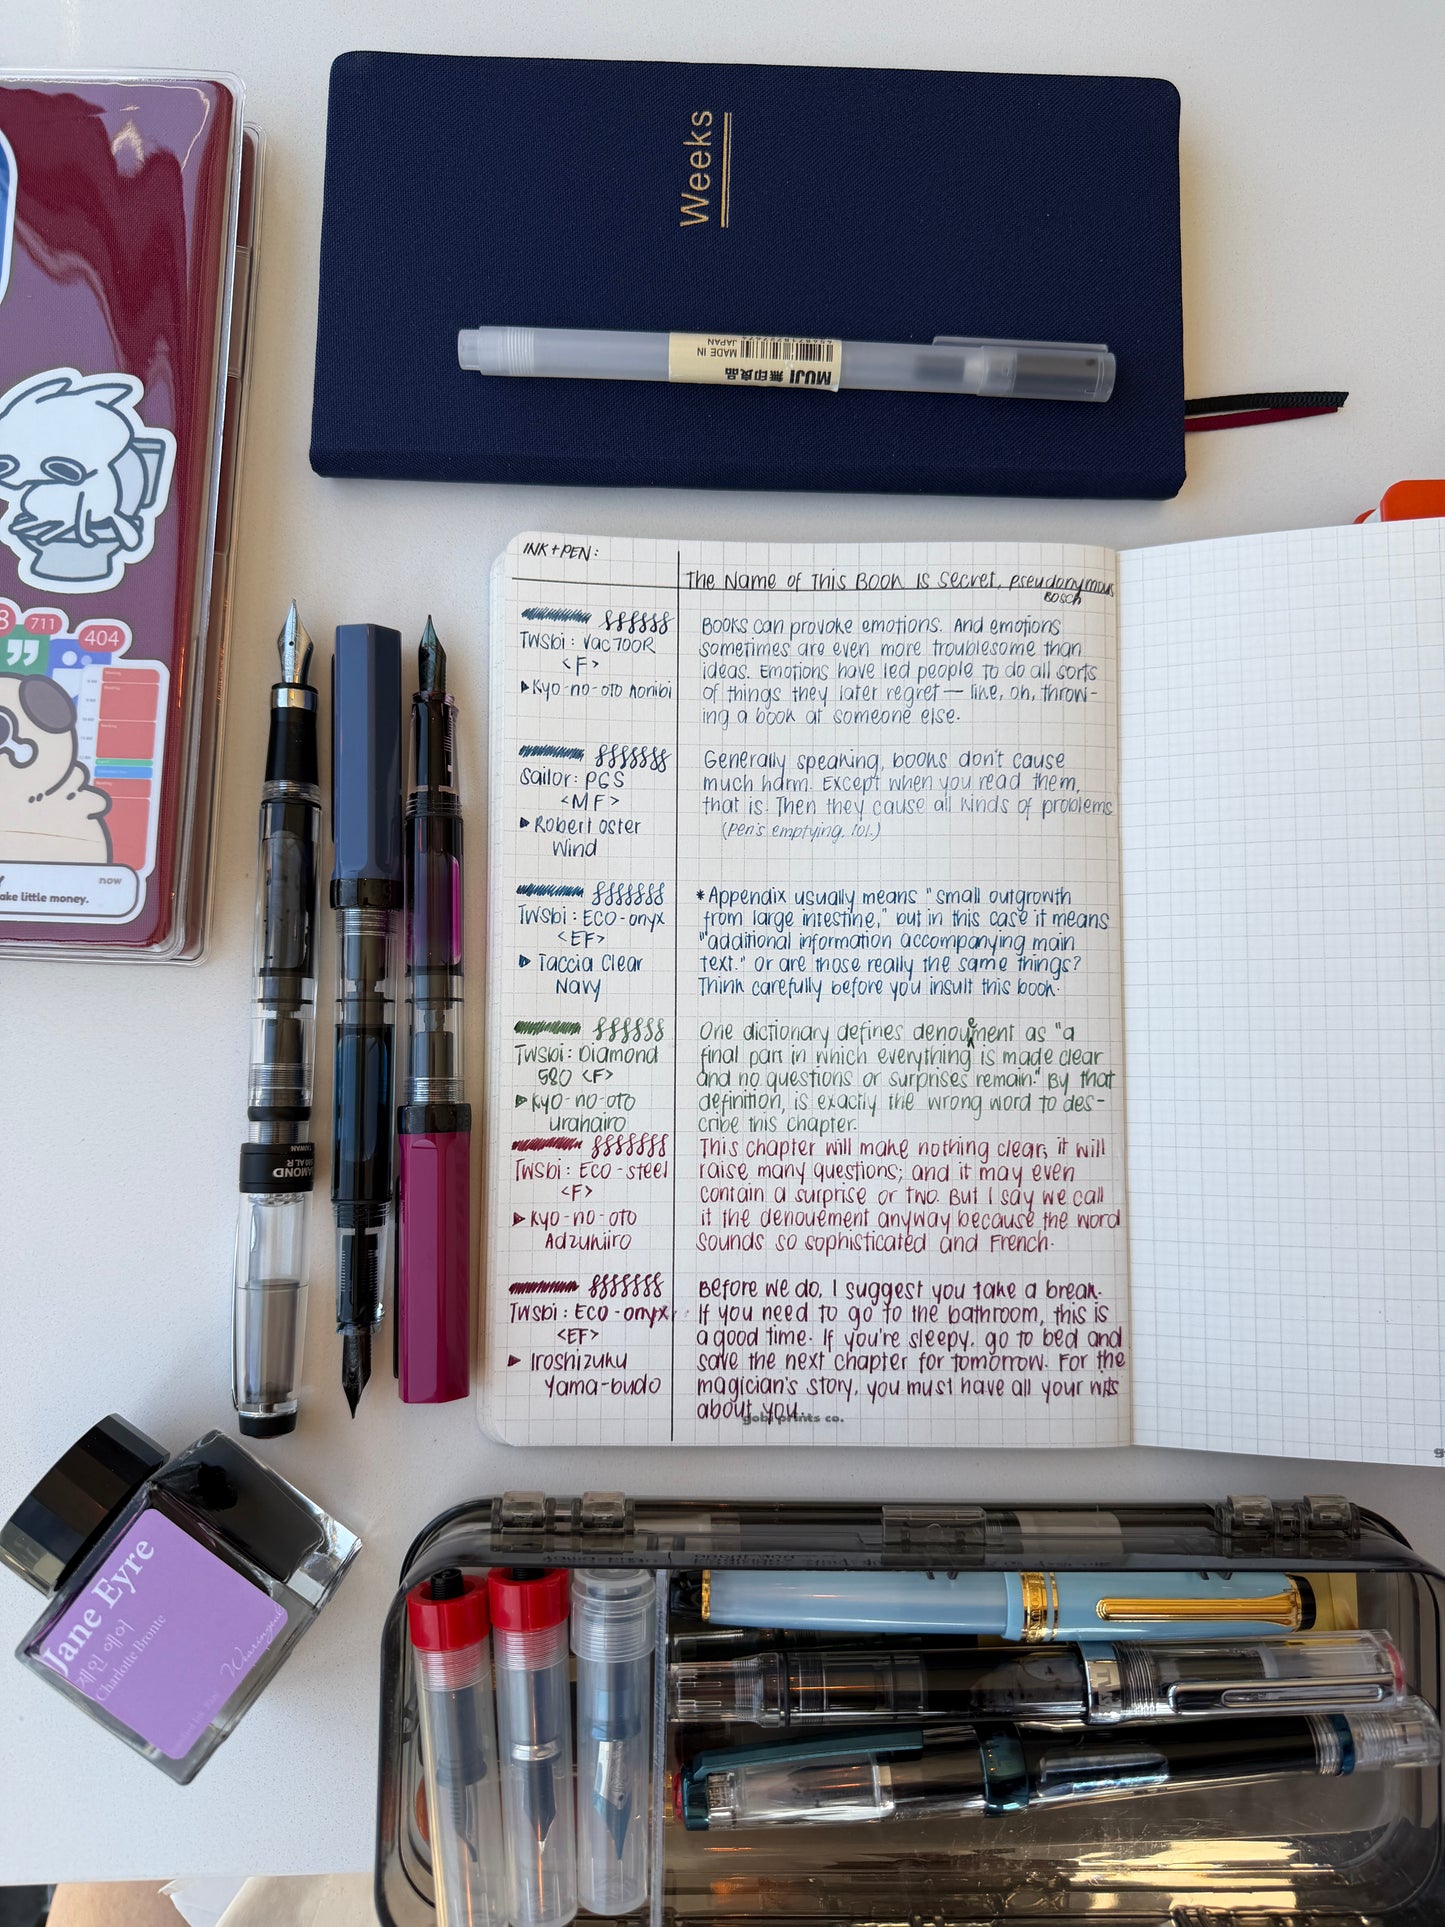 Weeks
MUJI 無印良品
MADE IN
JAPAN
711
404
now
ake little money.
INK + PEN:
The Name of This Book Is Secret, pseudonymous
Bosch
TWSBI: Vac700R
<F>
▶Kyo-no-oto Aonibi
Books can provoke emotions. And emotions
sometimes are even more troublesome than
ideas. Emotions have led people to do all sorts
of things they later regret — like, oh, throw-
ing a book at someone else.
Sailor: PGS
<MF>
▶Robert Oster
Wind
Generally speaking, books don't cause
much harm. Except when you read them,
that is. Then they cause all kinds of problems
(Pen's emptying, lol.)
TWSBI: ECO-onyx
<EF>
▶Taccia Clear
Navy
*Appendix usually means "small outgrowth
from large intestine," but in this case it means
"additional information accompanying main
text." Or are those really the same things?
Think carefully before you insult this book.
TWSBI: Diamond
580 <F>
▶Kyo-no-oto
urahairo
One dictionary defines denouement as "a
final part in which everything is made clear
and no questions or surprises remain." By that
definition, is exactly the wrong word to des-
cribe this chapter.
TWSBI: ECO-steel
<F>
▶Kyo-no-oto
Adzukiiro
This chapter will make nothing clear; it will
raise many questions; and it may even
contain a surprise or two. But I say we call
it the denouement anyway because the word
sounds so sophisticated and French.
TWSBI: ECO-onyx
<EF>
▶Iroshizuku
Yama-budo
Before we do, I suggest you take a break.
If you need to go to the bathroom, this is
a good time. If you're sleepy, go to bed and
save the next chapter for tomorrow. For the
magician's story, you must have all your wits
about you.
gobi prints co.
DIAMOND
580 AL R
TAIWAN
Jane Eyre
제인 에어
Charlotte Bronte
Wearingeul